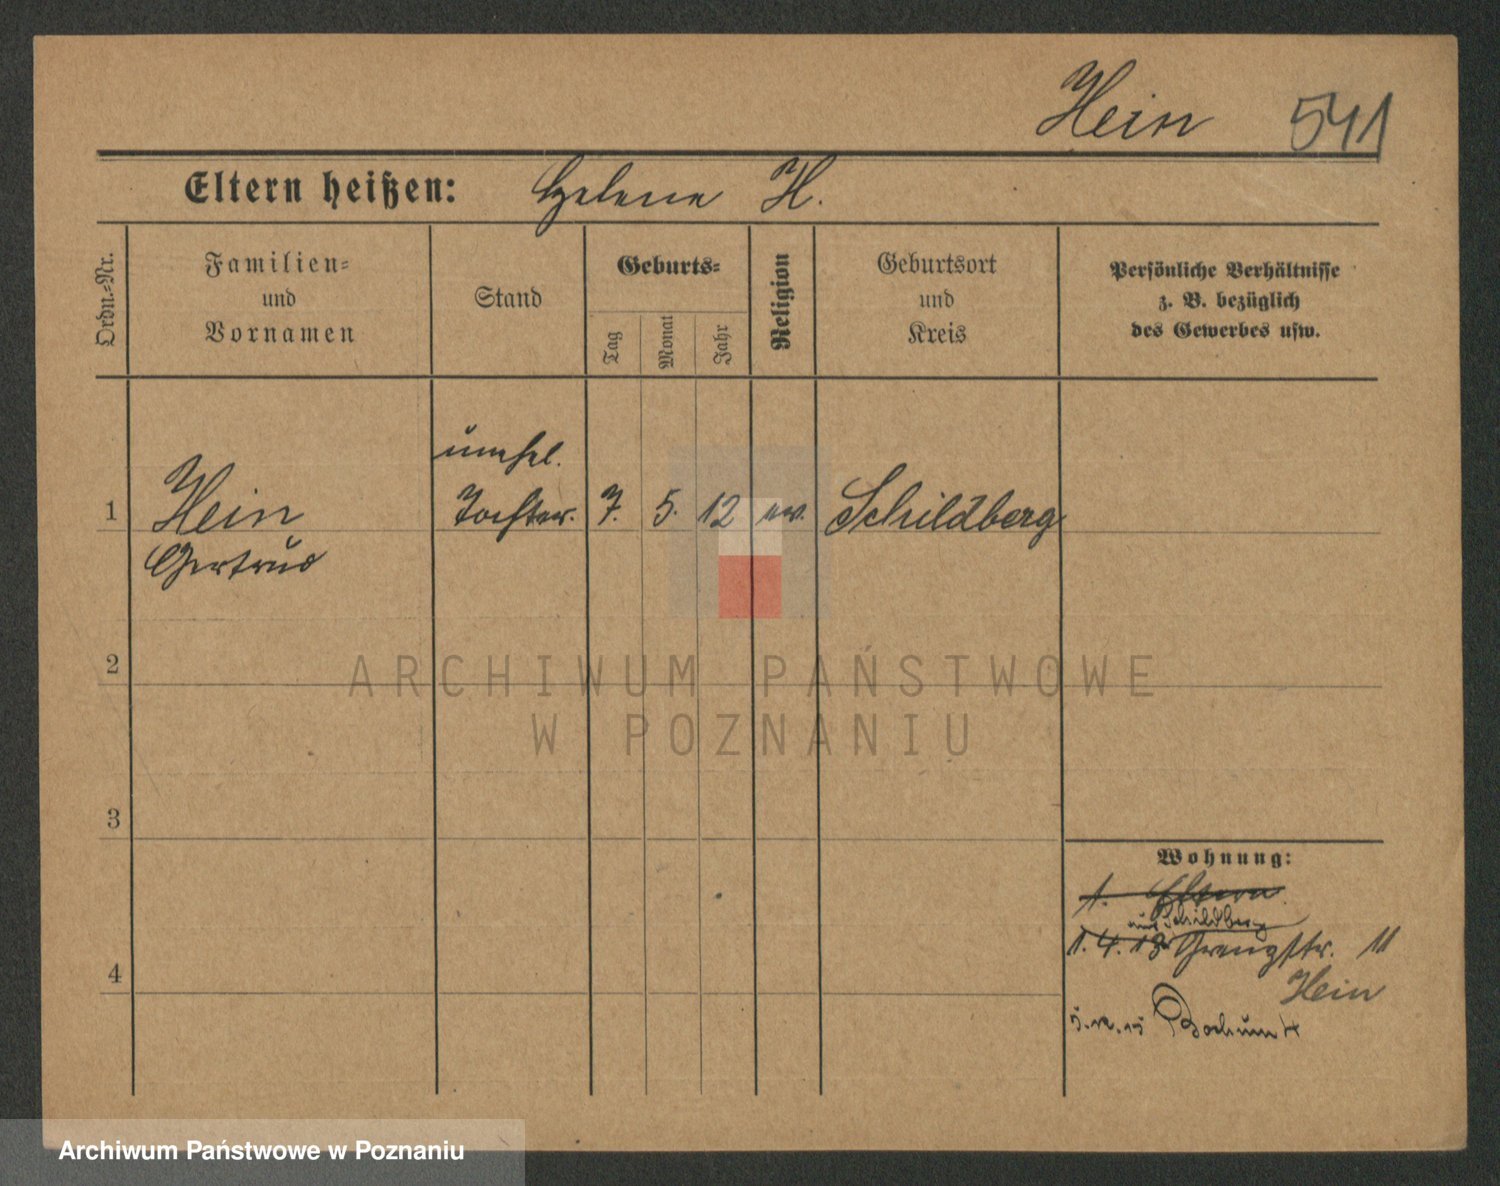 Hein 541
Eltern heißen: Helene H.
Ordn.-Nr.
Familien-
und
Vornamen
Stand
Geburts-
Tag
Monat
Jahr
Religion
Geburtsort
und
Kreis
Persönliche Verhältnisse
z. B. bezüglich
des Gewerbes usw.
unehel.
1 Hein Tochter. 7. 5. 12 ev. Schildberg
Gertrud
2
ARCHIWUM PAŃSTWOWE
W POZNANIU
3
Wohnung:
1.
aus Schildberg
1. 4. 13 Grenzstr. 11
4
Hein
Bochum
Archiwum Państwowe w Poznaniu